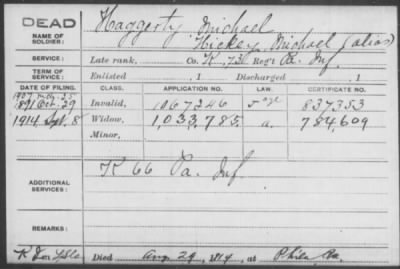 DEAD
NAME OF SOLDIER: Haggerty, Michael
Hickey, Michael (alias)
SERVICE: Late rank, Co. K, 73 Reg't Pa. Inf.
TERM OF SERVICE: Enlisted , 1 Discharged , 1
DATE OF FILING. CLASS. APPLICATION NO. LAW. CERTIFICATE NO.
1891 Oct. 29 Invalid, 1067246 837353
1914, Sept. 8 Widow, 1,033,785 a. 784,609
Minor,
ADDITIONAL SERVICES: K 66 Pa. Inf.
REMARKS:
Died Aug 29, 1914, at Phila Pa.